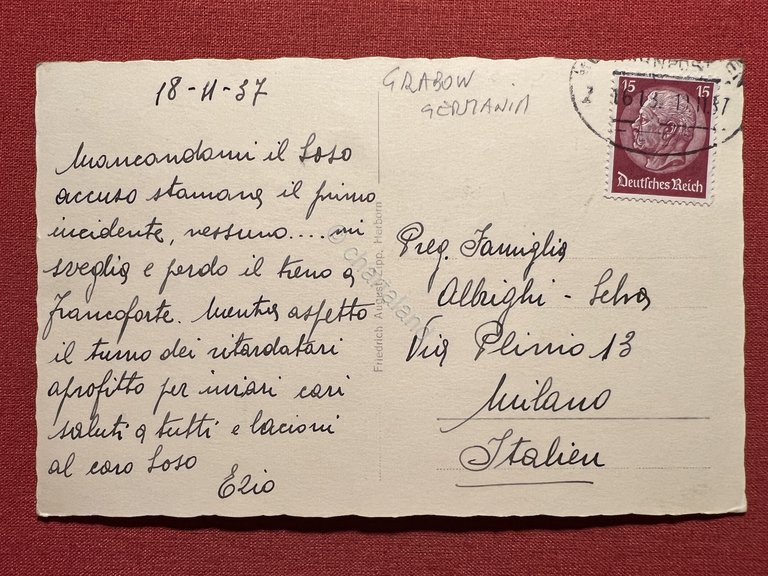 18-11-37
Mancandomi il Soso
accuso stamane il primo
incidente, nessuno.... mi
sveglia e perdo il treno a
Francoforte. Mentre aspetto
il turno dei ritardatari
aprofitto per inviari cari
saluti a tutti e bacioni
al caro Soso
Ezio
GRABOW
GERMANIA
15 15
Deutsches Reich
Preg. Famiglia
Albrighi - Selva
Via Plinio 13
Milano
Italien
Friedrich August Zipp, Herborn